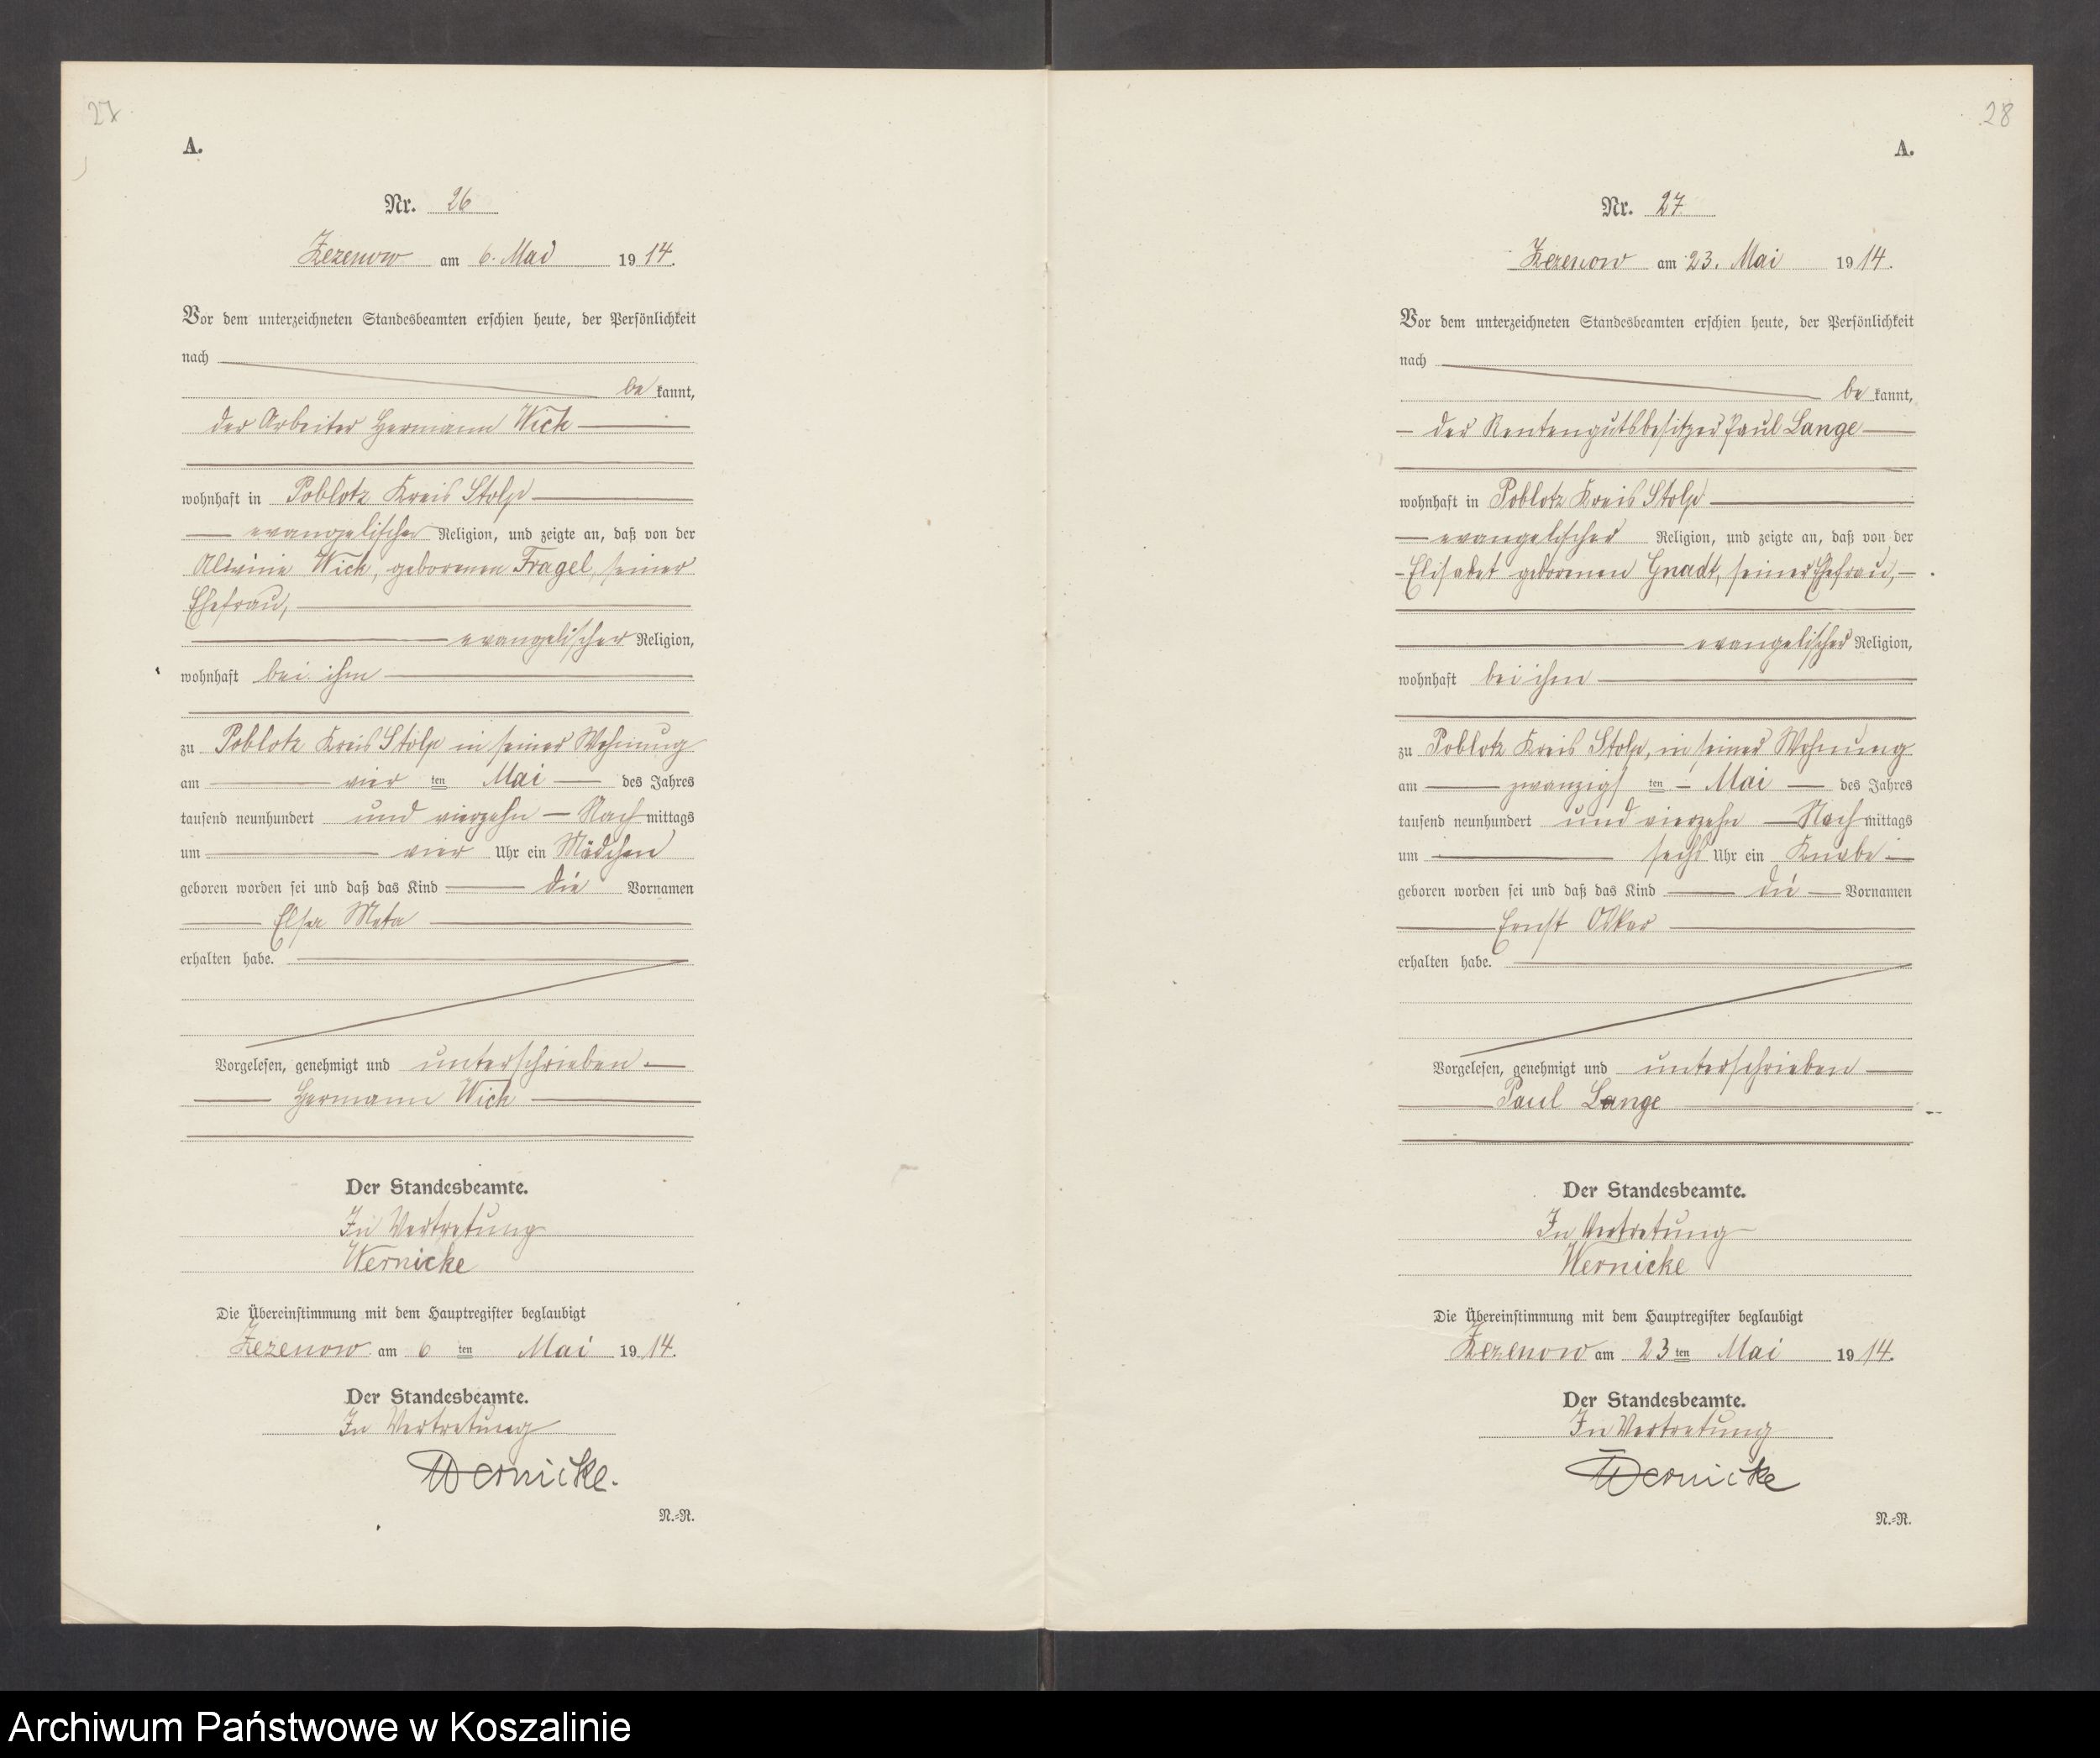 27
A.
Nr. 26
Zezenow am 6. Mai 1914.
Vor dem unterzeichneten Standesbeamten erschien heute, der Persönlichkeit
nach
bekannt,
der Arbeiter Hermann Wick
wohnhaft in Poblotz Kreis Stolp
evangelischer Religion, und zeigte an, daß von der
Alwine Wick, geborenen Fragel, seiner
Ehefrau,
evangelischer Religion,
wohnhaft bei ihm
zu Poblotz Kreis Stolp in seiner Wohnung
am vier ten Mai des Jahres
tausend neunhundert und vierzehn Nachmittags
um vier Uhr ein Mädchen
geboren worden sei und daß das Kind die Vornamen
Elsa Meta
erhalten habe.
Vorgelesen, genehmigt und unterschrieben.
Hermann Wick
Der Standesbeamte.
In Vertretung
Wernicke
Die Übereinstimmung mit dem Hauptregister beglaubigt
Zezenow am 6 ten Mai 1914.
Der Standesbeamte.
In Vertretung
Wernicke.
N.-R.
28
A.
Nr. 27
Zezenow am 23. Mai 1914.
Vor dem unterzeichneten Standesbeamten erschien heute, der Persönlichkeit
nach
bekannt,
der Rentengutsbesitzer Paul Lange
wohnhaft in Poblotz Kreis Stolp
evangelischer Religion, und zeigte an, daß von der
Elisabet geborenen Gnadt, seiner Ehefrau,
evangelischer Religion,
wohnhaft bei ihm
zu Poblotz Kreis Stolp, in seiner Wohnung
am zwanzigs ten Mai des Jahres
tausend neunhundert und vierzehn Nachmittags
um sechs Uhr ein Knabe
geboren worden sei und daß das Kind die Vornamen
Ernst Oskar
erhalten habe.
Vorgelesen, genehmigt und unterschrieben
Paul Lange
Der Standesbeamte.
In Vertretung
Wernicke
Die Übereinstimmung mit dem Hauptregister beglaubigt
Zezenow am 23 ten Mai 1914.
Der Standesbeamte.
In Vertretung
Wernicke
N.-R.
Archiwum Państwowe w Koszalinie